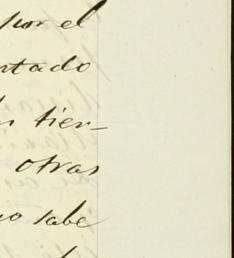 por el
ntado
tier-
otras
no sabe